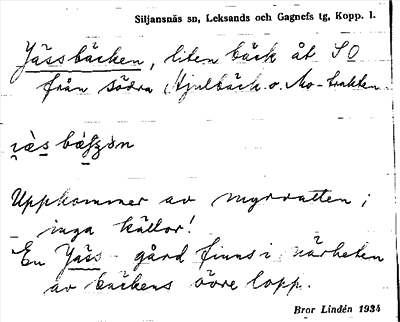 Siljansnäs sn, Leksands och Gagnefs tg, Kopp. l.
Jässbäcken, liten bäck åt SO
från södra Hjulbäck o. Mo-trakten.
Uppkommer av myrvatten;
inga källor!
En Jäss-gård finns i närheten
av bäckens övre lopp.
Bror Lindén 1934